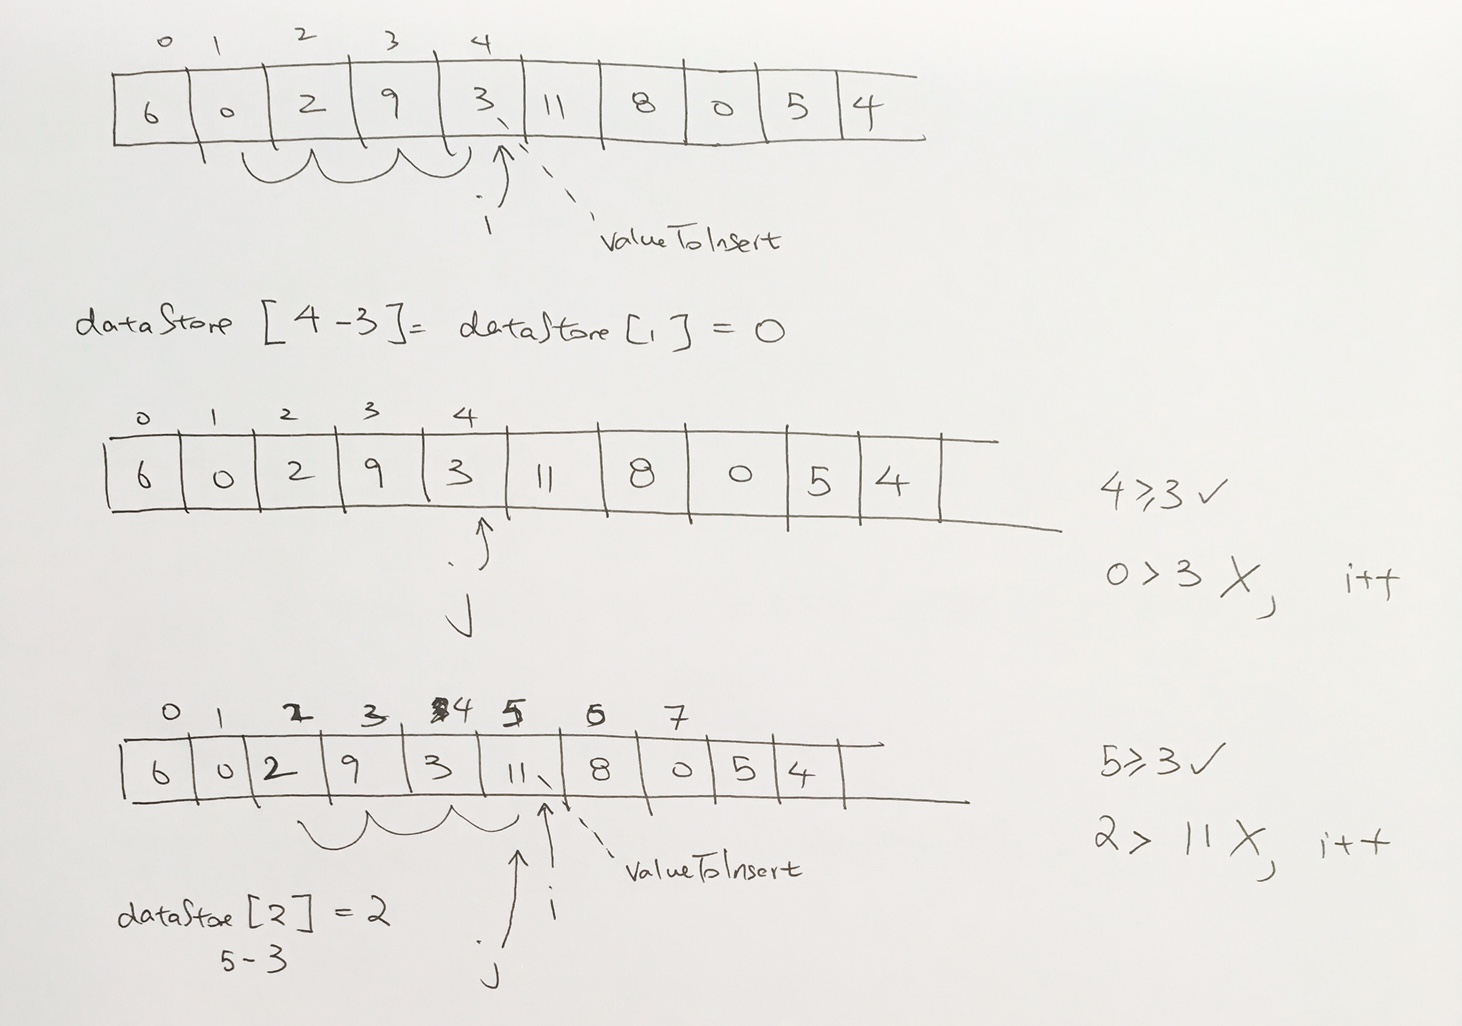 0 1 2 3 4
6 0 2 9 3 11 8 0 5 4
i
valueToInsert
dataStore [4-3]= dataStore [1] = 0
0 1 2 3 4
6 0 2 9 3 11 8 0 5 4
4≥3 ✓
j
0>3 X, i++
0 1 2 3 4 5 6 7
6 0 2 9 3 11 8 0 5 4
5≥3 ✓
2> 11 X, i++
valueToInsert
i
dataStore [2] = 2
5-3
j